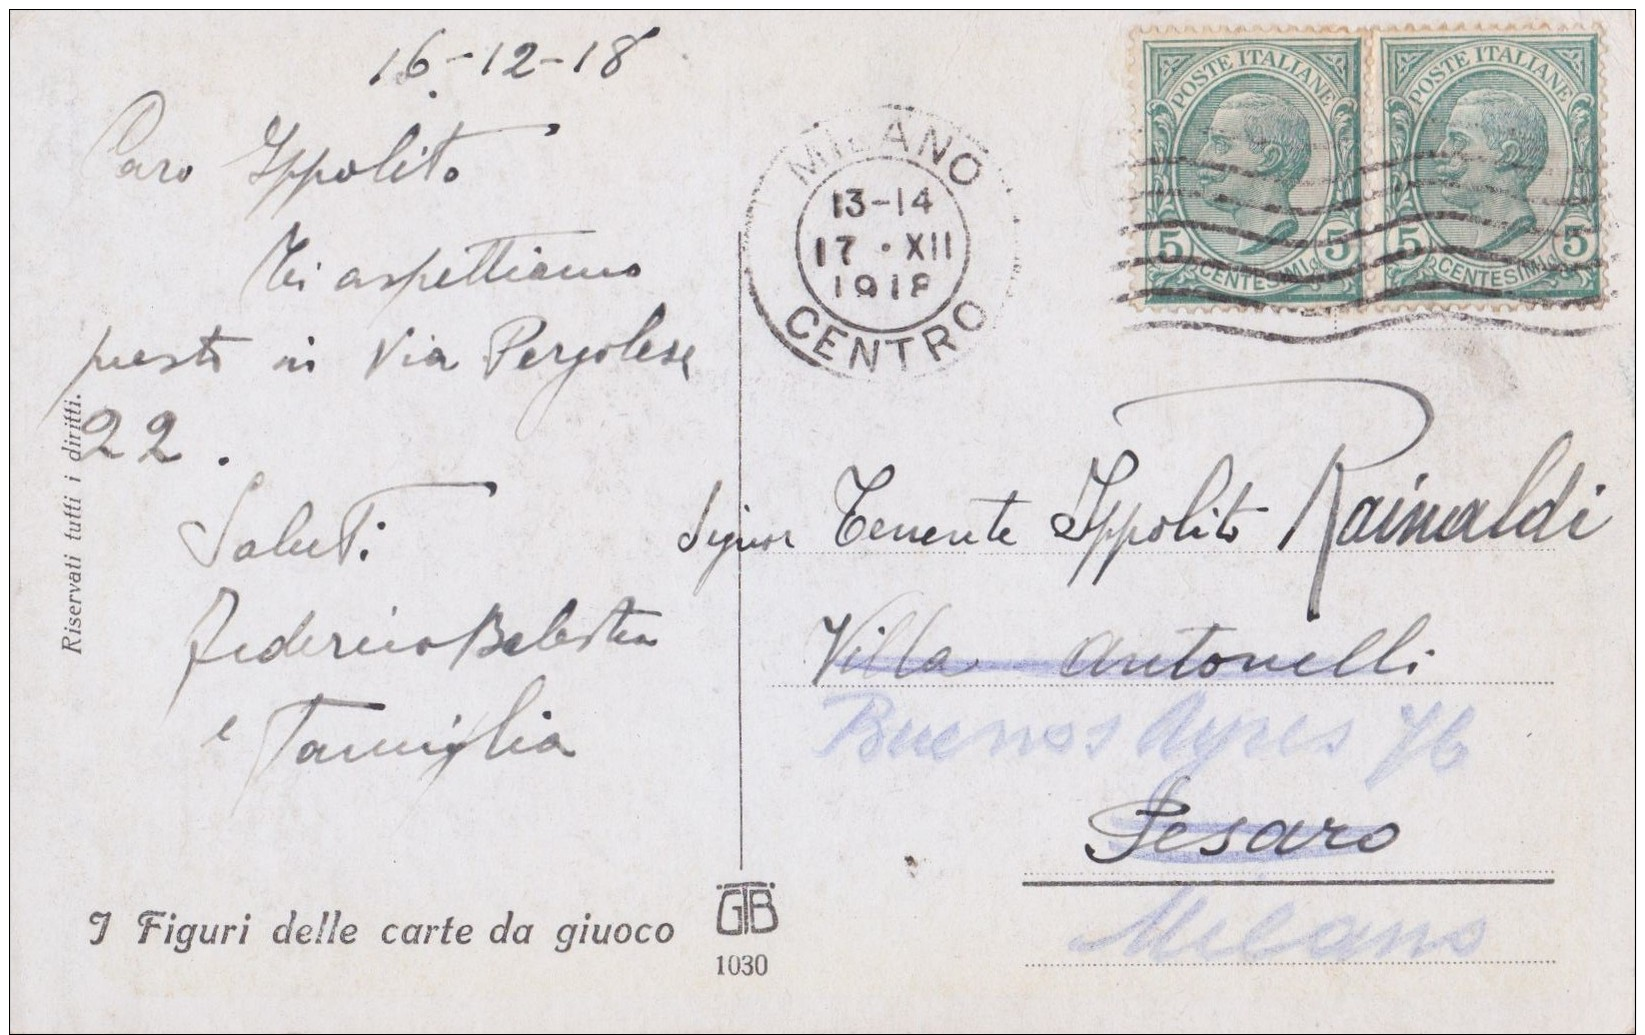 16-12-18
Caro Ippolito
Ti aspettiamo
presto in Via Pergolese
22.
Saluti
Federico Balestra
e Famiglia
Riservati tutti i diritti.
I Figuri delle carte da giuoco
GTB
1030
MILANO
13-14
17 · XII
1918
CENTRO
POSTE ITALIANE
5 CENTESIMI 5
POSTE ITALIANE
5 CENTESIMI 5
Signor Tenente Ippolito Rainaldi
Villa Antonelli
Buenos Ayres 76
Pesaro
Milano